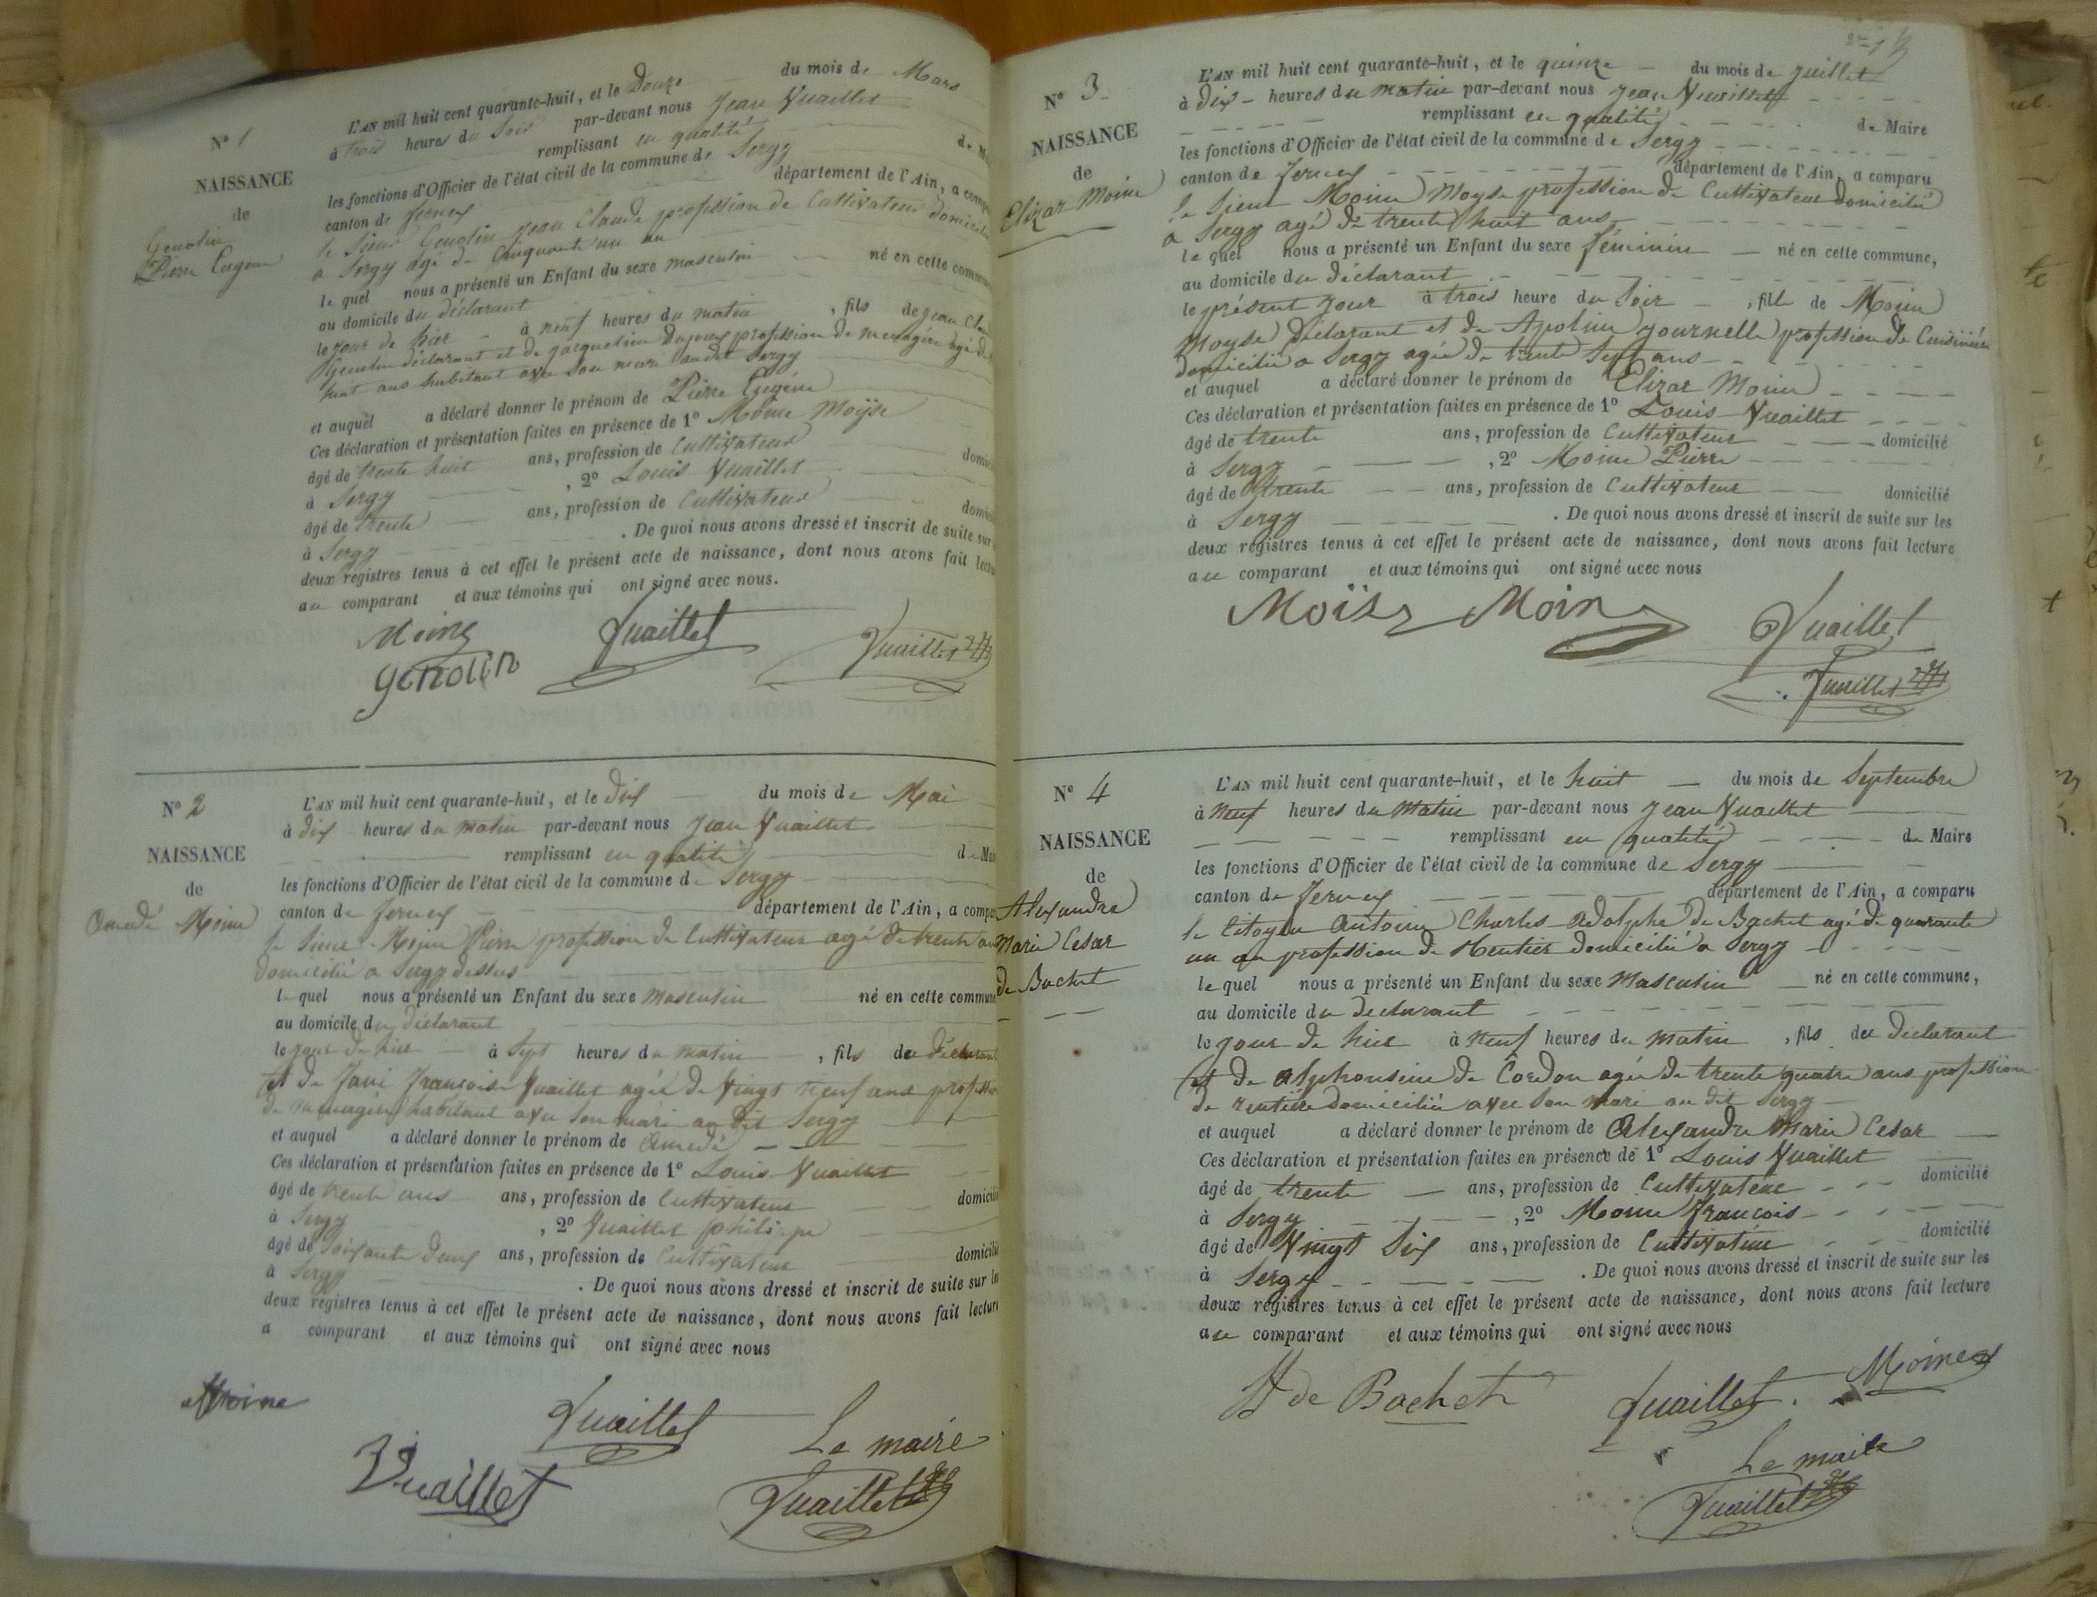 N° 1
NAISSANCE
de
Genolin
Pierre Eugene
L'AN mil huit cent quarante-huit, et le Douze du mois de Mars
à trois heures du Soir par-devant nous Jean Vuaillet
remplissant en qualité de
les fonctions d'Officier de l'état civil de la commune de Sergy
canton de Ferney département de l'Ain, a comparu
le Sieur Genolin Jean Claude profession de Cultivateur domicilié
a Sergy agé de Cinquante un an
le quel nous a présenté un Enfant du sexe masculin né en cette commune
au domicile du déclarant
le jour de hier à neuf heures du matin , fils de Jean Claude
Genolin déclarant et de Jacqueline profession de menagère agé de
huit ans habitant avec son mari audit Sergy
et auquel a déclaré donner le prénom de Pierre Eugéne
Ces déclaration et présentation faites en présence de 1° Moine Moÿse
âgé de trente huit ans, profession de Cultivateur domicilié
à Sergy , 2° Louis Vuaillet
âgé de trente ans, profession de Cultivateur domicilié
à Sergy . De quoi nous avons dressé et inscrit de suite sur
deux registres tenus à cet effet le présent acte de naissance, dont nous avons fait lecture
au comparant et aux témoins qui ont signé avec nous.
Moine Vuaillet Vuaillet
genolin
N° 2
NAISSANCE
de
Amedé Moine
L'AN mil huit cent quarante-huit, et le dix du mois de Mai
à dix heures du matin par-devant nous Jean Vuaillet
remplissant en qualité de Maire
les fonctions d'Officier de l'état civil de la commune de Sergy
canton de Ferney département de l'Ain, a comparu
le Sieur Moine Pierre profession de Cultivateur agé de trente ans
domicilié a Sergy dessus
le quel nous a présenté un Enfant du sexe masculin né en cette commune
au domicile du déclarant
le jour de hier à Sept heures du matin , fils du déclarant
et de Jani Françoise Vuaillet agée de Vingt neuf ans profession
de menagère habitant avec son mari au dit Sergy
et auquel a déclaré donner le prénom de Amedé
Ces déclaration et présentation faites en présence de 1° Louis Vuaillet
âgé de trente ans ans, profession de Cultivateur domicilié
à Sergy , 2° Vuaillet philipe
âgé de Soixante Deux ans, profession de Cultivateur domicilié
à Sergy . De quoi nous avons dressé et inscrit de suite sur les
deux registres tenus à cet effet le présent acte de naissance, dont nous avons fait lecture
a comparant et aux témoins qui ont signé avec nous
Moine Vuaillet Le maire
Vuaillet Vuaillet
N° 3
NAISSANCE
de
Elizar Moine
L'AN mil huit cent quarante-huit, et le quinze du mois de Juillet
à dix heures du matin par-devant nous Jean Vuaillet
remplissant en qualité de Maire
les fonctions d'Officier de l'état civil de la commune de Sergy
canton de Ferney département de l'Ain, a comparu
le Sieur Moine Moyse profession de Cultivateur domicilié
a Sergy agé de trente huit ans
le quel nous a présenté un Enfant du sexe féminin né en cette commune,
au domicile du déclarant
le présent jour à trois heure du Soir , fill de Moine
Moyse déclarant et de Apoline Journelle profession de Cuisinière
domicilié a Sergy agée de trente Sept ans
et auquel a déclaré donner le prénom de Elizar Moine
Ces déclaration et présentation faites en présence de 1° Louis Vuaillet
âgé de trente ans, profession de Cultivateur domicilié
à Sergy , 2° Moine Pierre
âgé de trente ans, profession de Cultivateur domicilié
à Sergy . De quoi nous avons dressé et inscrit de suite sur les
deux registres tenus à cet effet le présent acte de naissance, dont nous avons fait lecture
au comparant et aux témoins qui ont signé avec nous
Moïse Moine Vuaillet
Vuaillet
N° 4
NAISSANCE
de
Alexandre
Marie Cesar
de Bachet
L'AN mil huit cent quarante-huit, et le huit du mois de Septembre
à Neuf heures du Matin par-devant nous Jean Vuaillet
remplissant en qualité de Maire
les fonctions d'Officier de l'état civil de la commune de Sergy
canton de Ferney département de l'Ain, a comparu
le Citoyen Antoine Charles Adolphe de Bachet agé de quarante
un an profession de Rentier domicilié a Sergy
le quel nous a présenté un Enfant du sexe Masculin né en cette commune,
au domicile du declarant
le jour de hier à neuf heures du matin , fils du declarant
et de Alphonsine de Cordon agée de trente quatre ans profession
de rentière domiciliée avec son mari au dit Sergy
et auquel a déclaré donner le prénom de Alexandre Marie Cesar
Ces déclaration et présentation faites en présence de 1° Louis Vuaillet
âgé de trente ans, profession de Cultivateur domicilié
à Sergy , 2° Moine François
âgé de Vingt Six ans, profession de Cultivateur domicilié
à Sergy . De quoi nous avons dressé et inscrit de suite sur les
deux registres tenus à cet effet le présent acte de naissance, dont nous avons fait lecture
au comparant et aux témoins qui ont signé avec nous
A de Bachet Vuaillet Moine
Le maire
Vuaillet